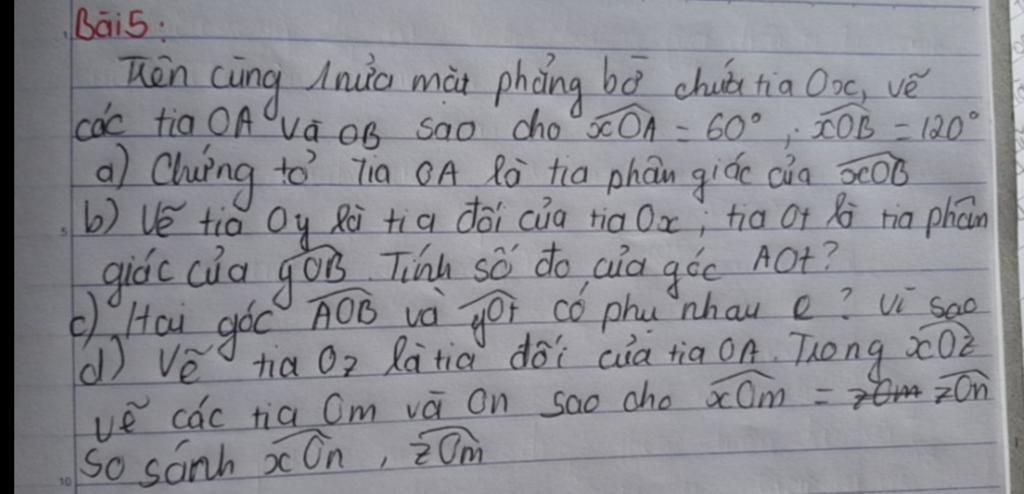 Bài 5:
Trên cùng 1 nửa mặt phẳng bờ chứa tia Ox, vẽ
các tia OA và OB sao cho xOA = 60°, xOB = 120°
a) Chứng tỏ Tia OA là tia phân giác của xOB
b) Vẽ tia Oy là tia đối của tia Ox; tia Ot là tia phân
giác của yOB. Tính số đo của góc AOt?
c) Hai góc AOB và yOt có phụ nhau ? Vì sao
d) Vẽ tia Oz là tia đối của tia OA. Trong xOz
vẽ các tia Om và On sao cho xOm = zOm zOn
So sánh xOn, zOm